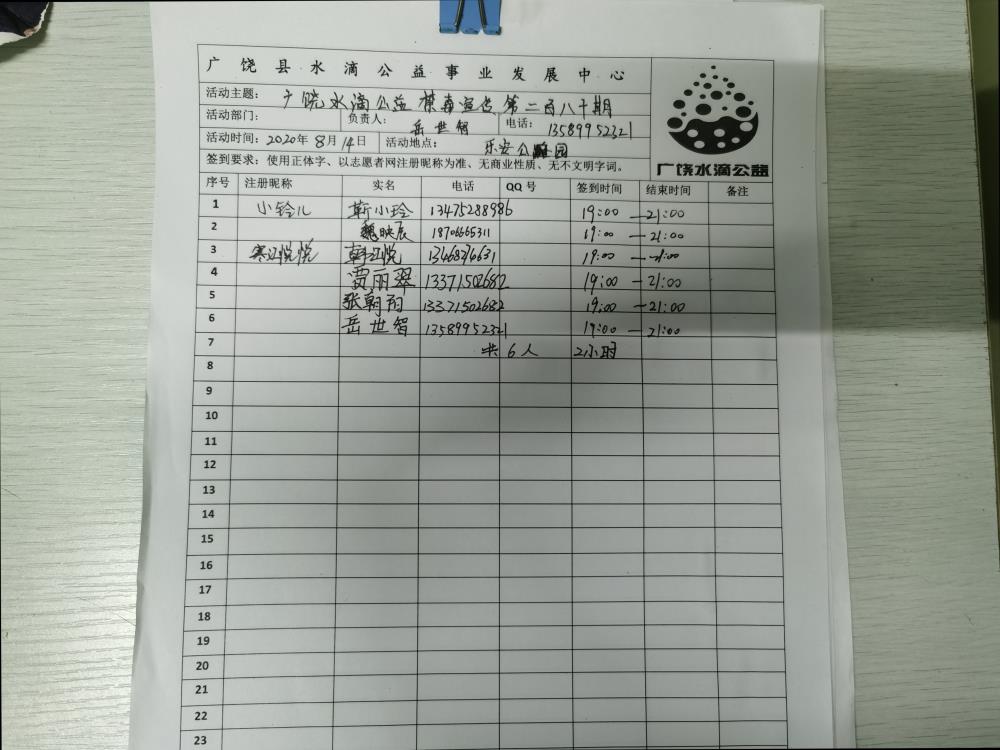 广饶县水滴公益事业发展中心
活动主题: 广饶水滴公益禁毒宣传第二百八十期
活动部门: 负责人: 岳世智 电话: 13589952321
活动时间: 2020年8月14日 活动地点: 乐安公园
签到要求: 使用正体字、以志愿者网注册昵称为准、无商业性质、无不文明字词。
广饶水滴公益
序号 注册昵称 实名 电话 QQ号 签到时间 结束时间 备注
1 小铃儿 靳小玲 13475288986 19:00 —21:00
2 魏映辰 18706665311 19:00 —21:00
3 寒江悦悦 韩江悦 19:00 —21:00
4 贾丽翠 13371502682 19:00 —21:00
5 张朝阳 13371502682 19:00 —21:00
6 岳世智 13589952321 19:00 —21:00
7 共6人 2小时
8
9
10
11
12
13
14
15
16
17
18
19
20
21
22
23